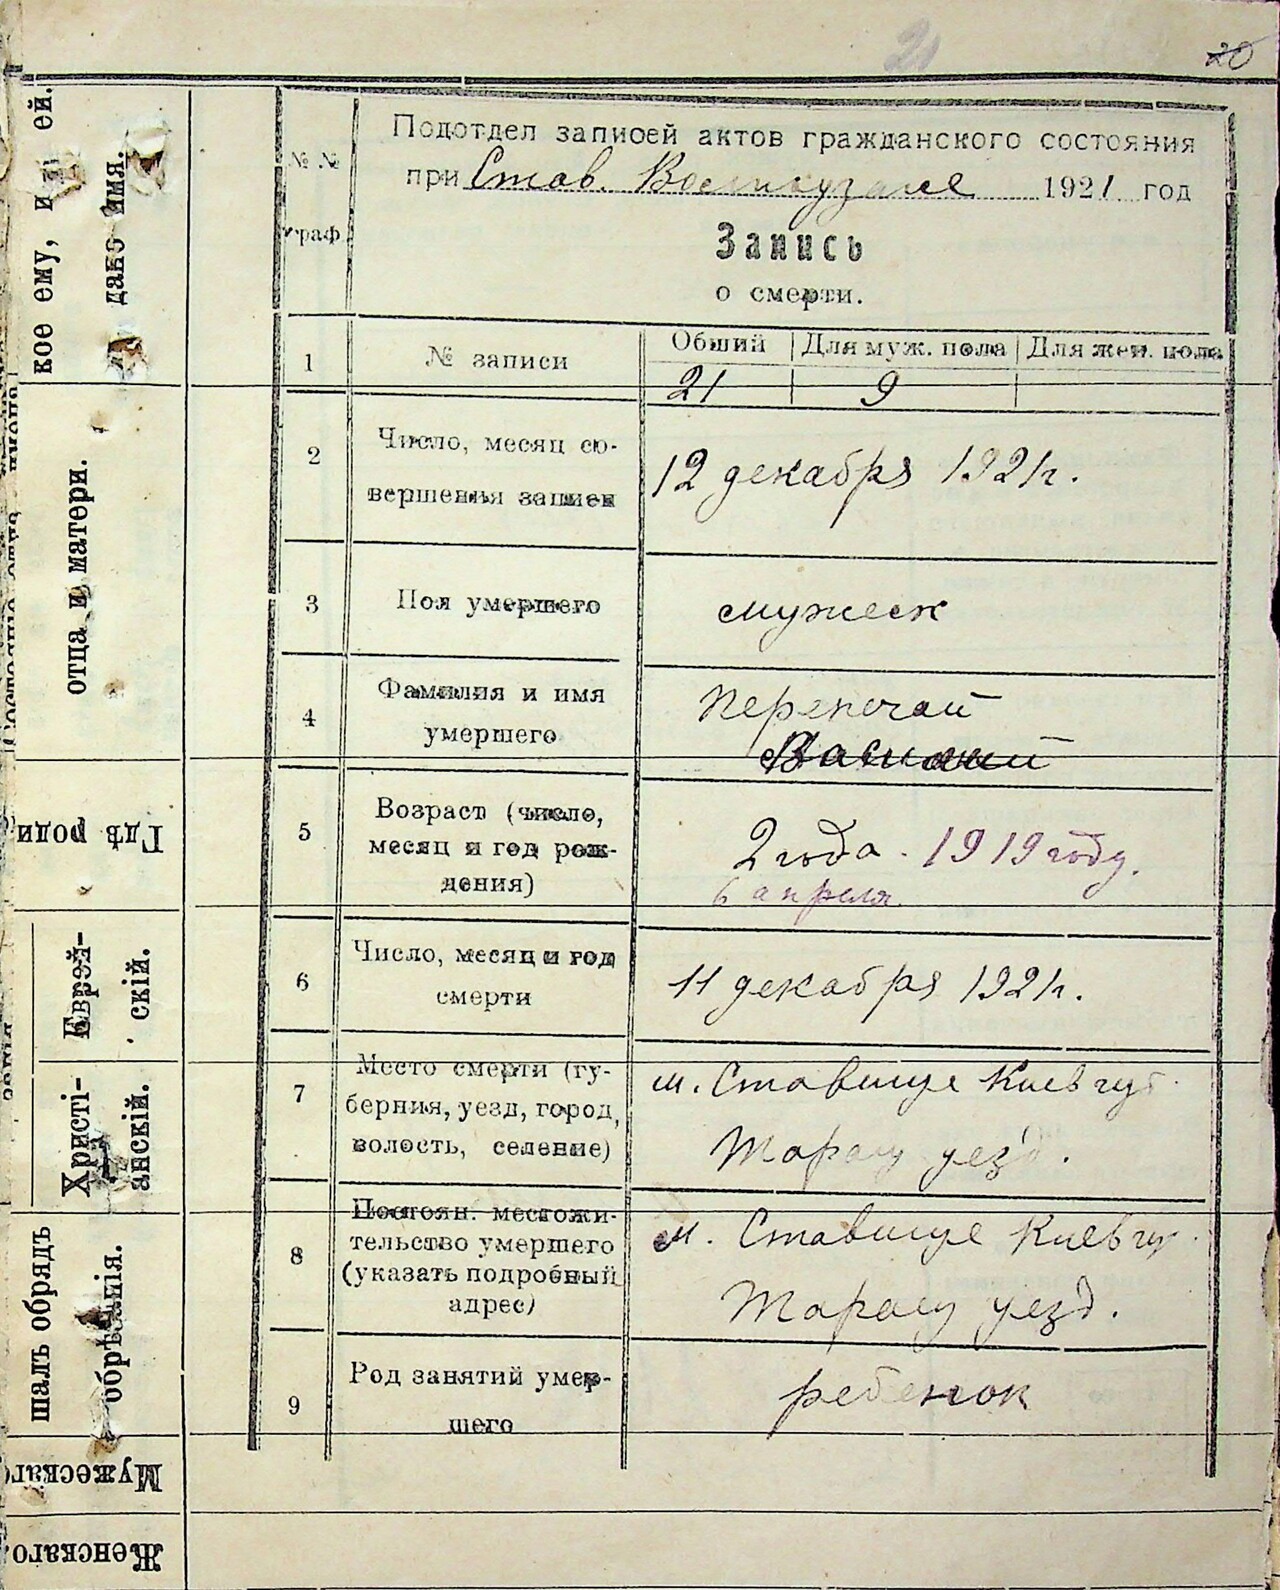 21 20
Подотдел записей актов гражданского состояния
при Став. 1921 год
№ №
граф
Запись
о смерти.
1 № записи Общий Для муж. пола Для жен. пола
21 9
2 Число, месяц со-
вершения записи
12 декабря 1921г.
3 Пол умершего мужеск
4 Фамилия и имя
умершего
Перепечай
Василий
5 Возраст (число,
месяц и год рож-
дения)
2 года. 1919 году.
6 апреля
6 Число, месяц и год
смерти
11 декабря 1921г.
7 Место смерти (гу-
берния, уезд, город,
волость, селение)
м. Ставище Киев губ.
Таращ уезд.
8 Постоян. местожи-
тельство умершего
(указать подробный
адрес)
м. Ставище Киев гу.
Таращ уезд.
9 Род занятий умер-
шего
ребенок
кое ему, и ей.
дано имя.
отца и матери.
Гдѣ роди
Еврэй-
скій.
Христі-
анскій.
шалъ обрядъ
обрѣзанія.
Мужескаго
Женскаго.